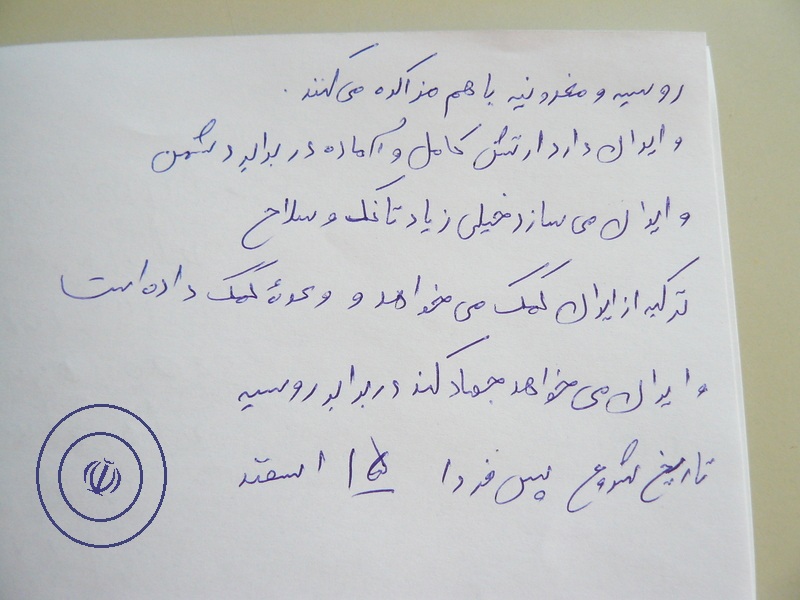 روسیه و مقدونیه با هم مذاکره می‌کنند.
و ایران دارد ارتش کامل و آماده در برابر دشمن
و ایران می سازد خیلی زیاد تانک و سلاح
ترکیه از ایران کمک می خواهد و وعدهٔ کمک داده است
و ایران می خواهد جهاد کند در برابر روسیه
تاریخ شروع پس فردا ۱۵ اسفند